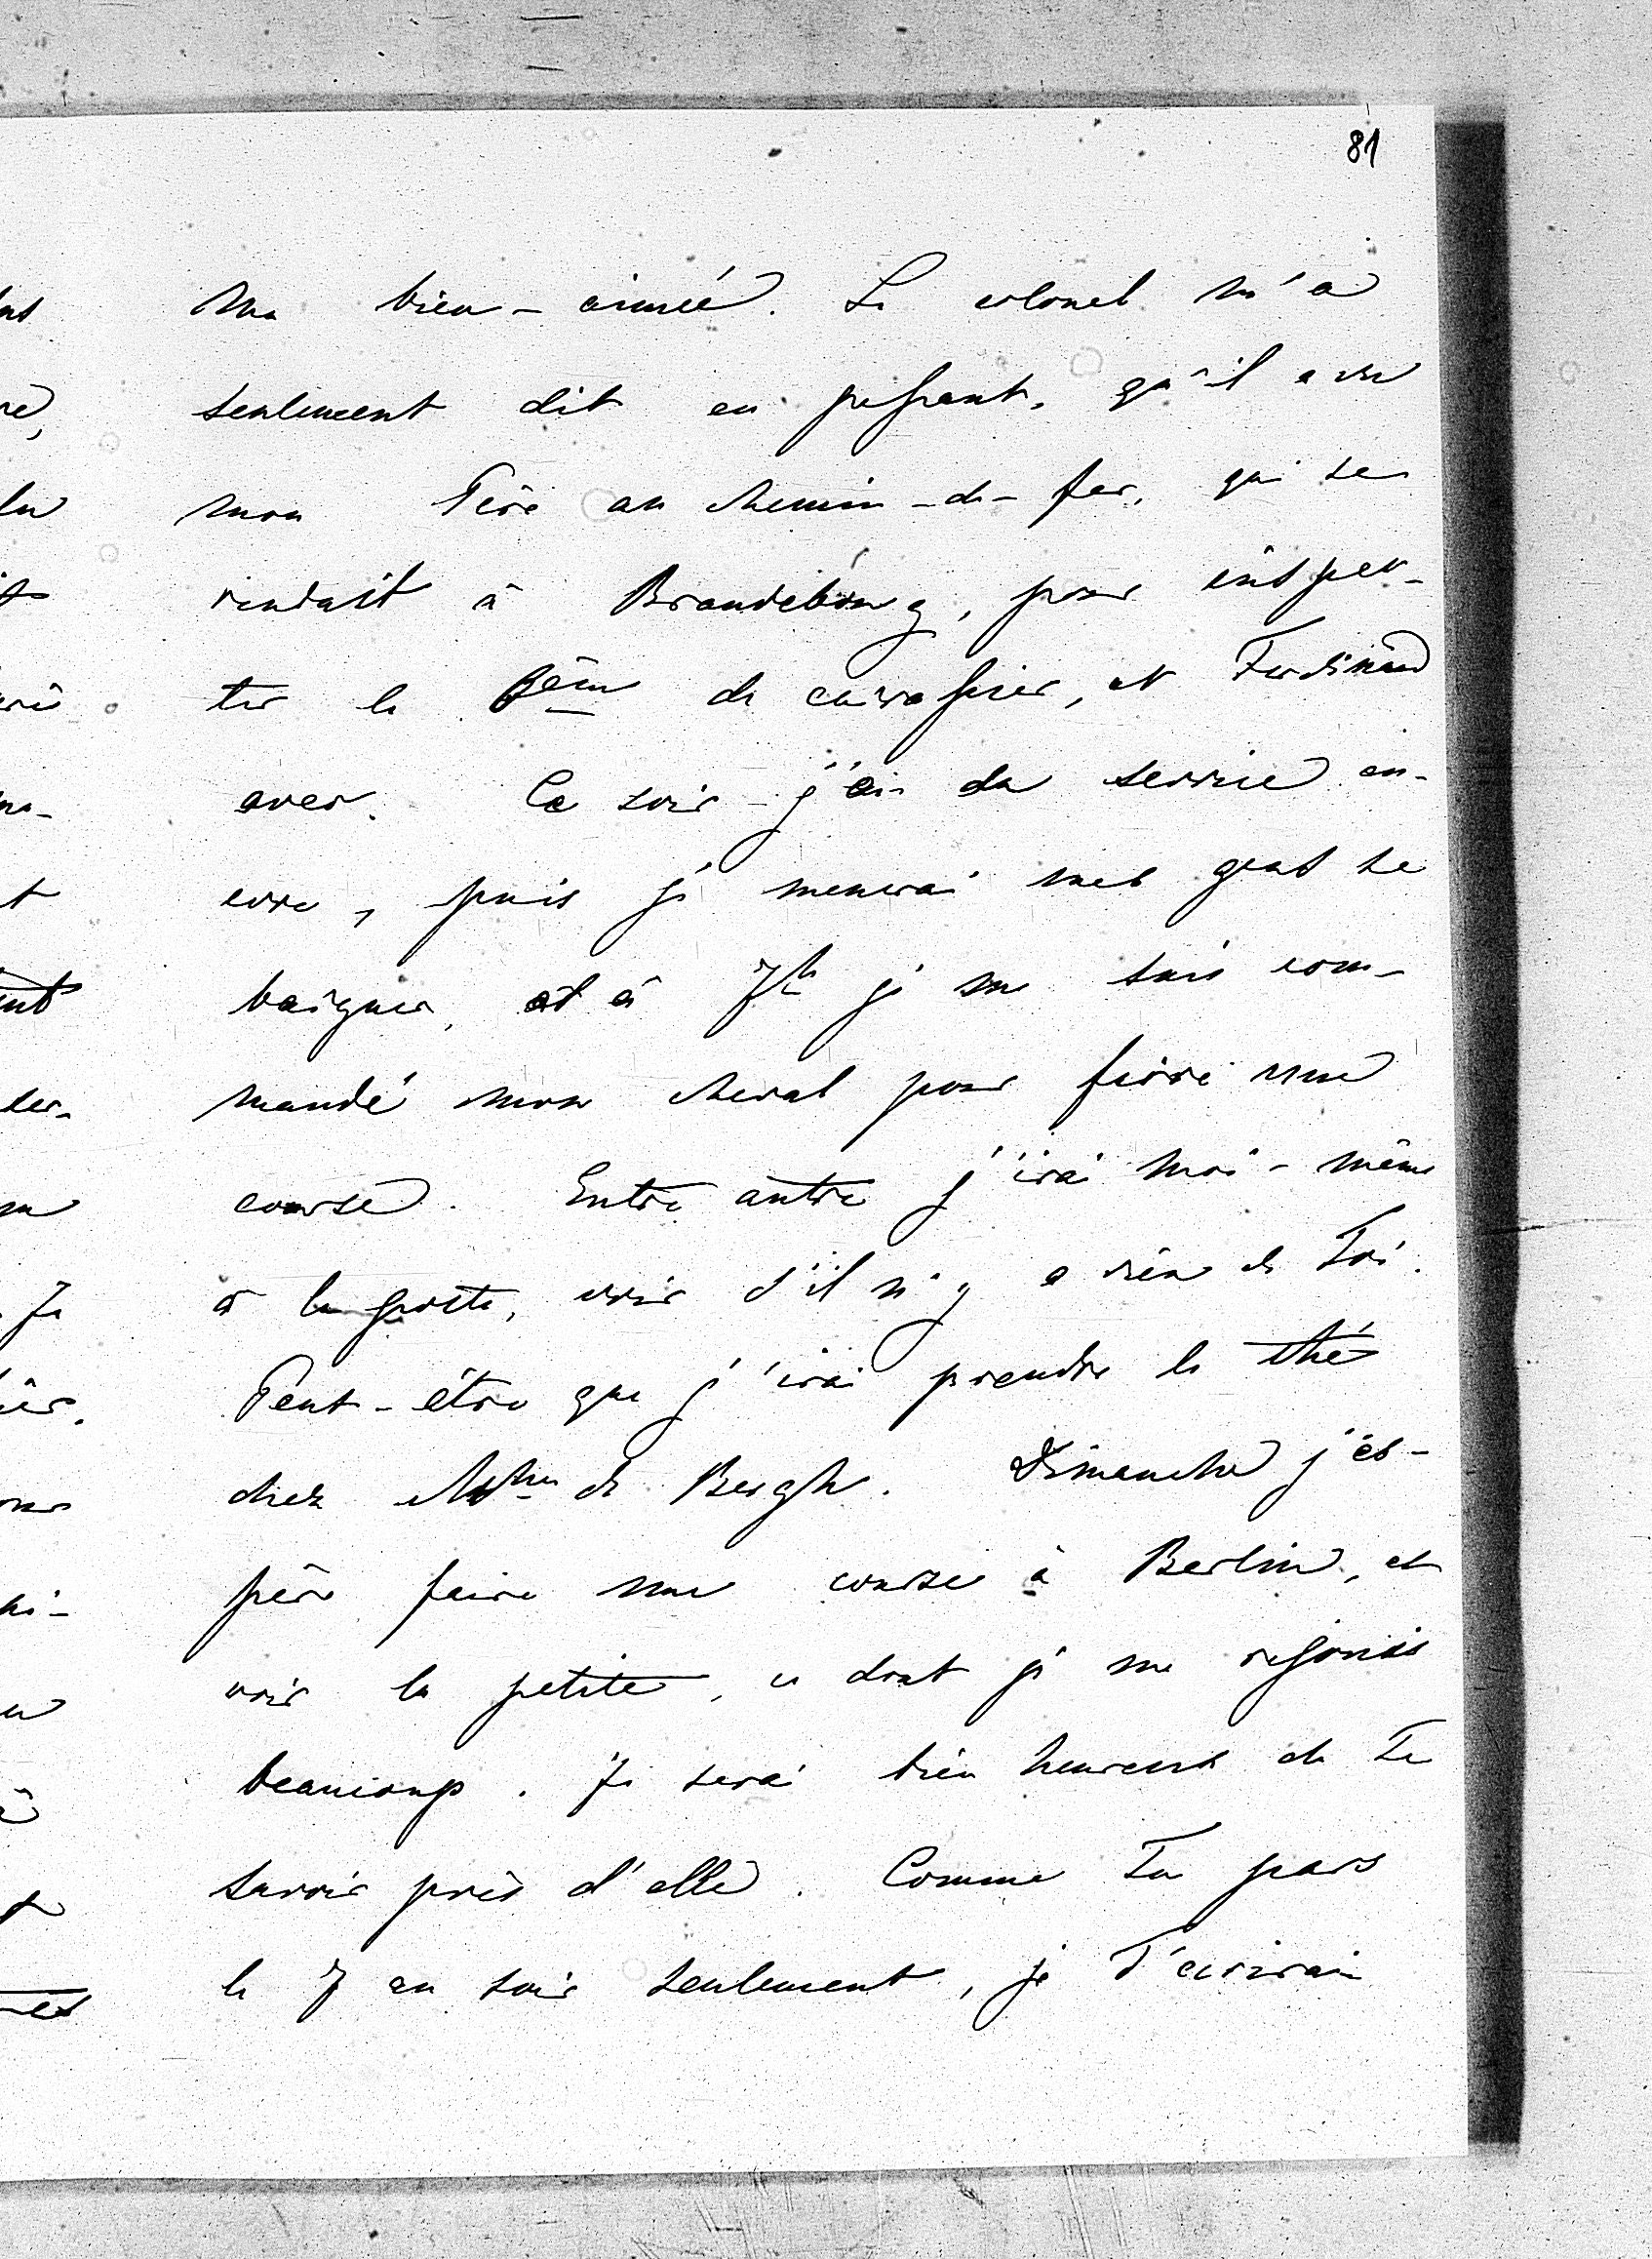 81
ma bien-aimée. Le colonel m'a
seulement dit en passant, qu'il a vu
mon Père au chemin-de-fer, qui se
rendait à Brandebourg, pour inspec-
ter le 6ème de cuirassier, et Ferdinand
avec. Ce soir j'ai du service en-
core, puis je menerai mes gens se
baigner, et à 7h je me suis com-
mandé mon cheval pour faire une
course. Entre autre j'irai moi-même
à la poste, voir s'il n'y a rien de Toi.
Peut-être que j'irai prendre le thé
chez Mme de Bergh. Dimanche j'es-
père faire une course à Berlin, et
voir la petite, ce dont je me rejouis
beaucoup. Je serai bien heureux de Te
savoir près d'elle. Comme Tu pars
le 7 au soir seulement, je T'écrirai